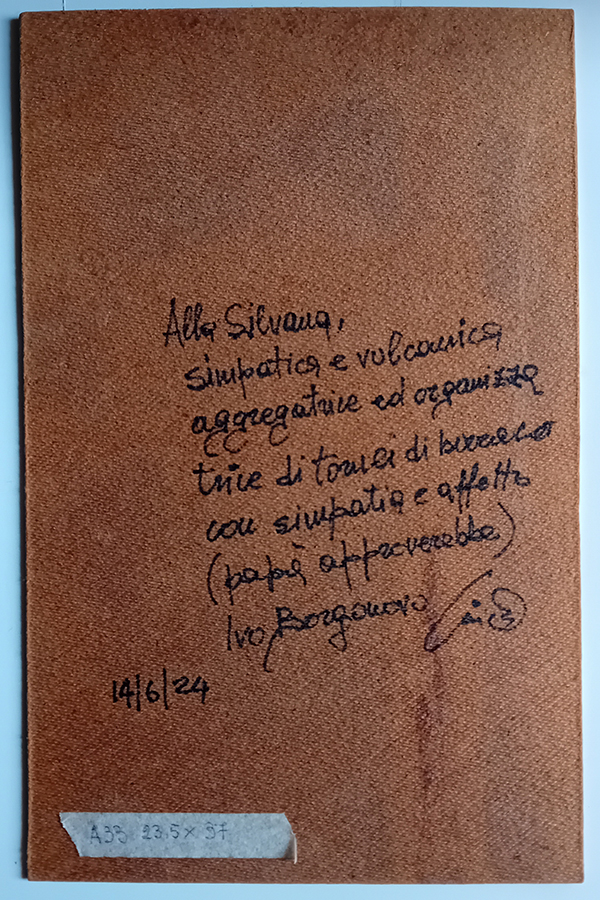 Alla Silvana,
simpatica e vulcanica
aggregatrice ed organizza
trice di tornei di burraco
con simpatia e affetto
(papà approverebbe)
Ivo Borgonovo
14/6/24
A33 23,5 x 37